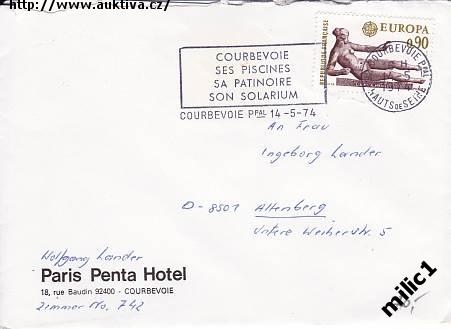 http://www.auktiva.cz/
REPUBLIQUE FRANÇAISE
EUROPA
0,90
COURBEVOIE
SES PISCINES
SA PATINOIRE
SON SOLARIUM
COURBEVOIE PPAL 14-5-74
COURBEVOIE PPAL
HAUTS DE SEINE
An Frau
Ingeborg Lander
D-8501 Altenberg
Untere Weiherstr. 5
Wolfgang Lander
Paris Penta Hotel
18, rue Baudin 92400 - COURBEVOIE
Zimmer No. 742
milic1